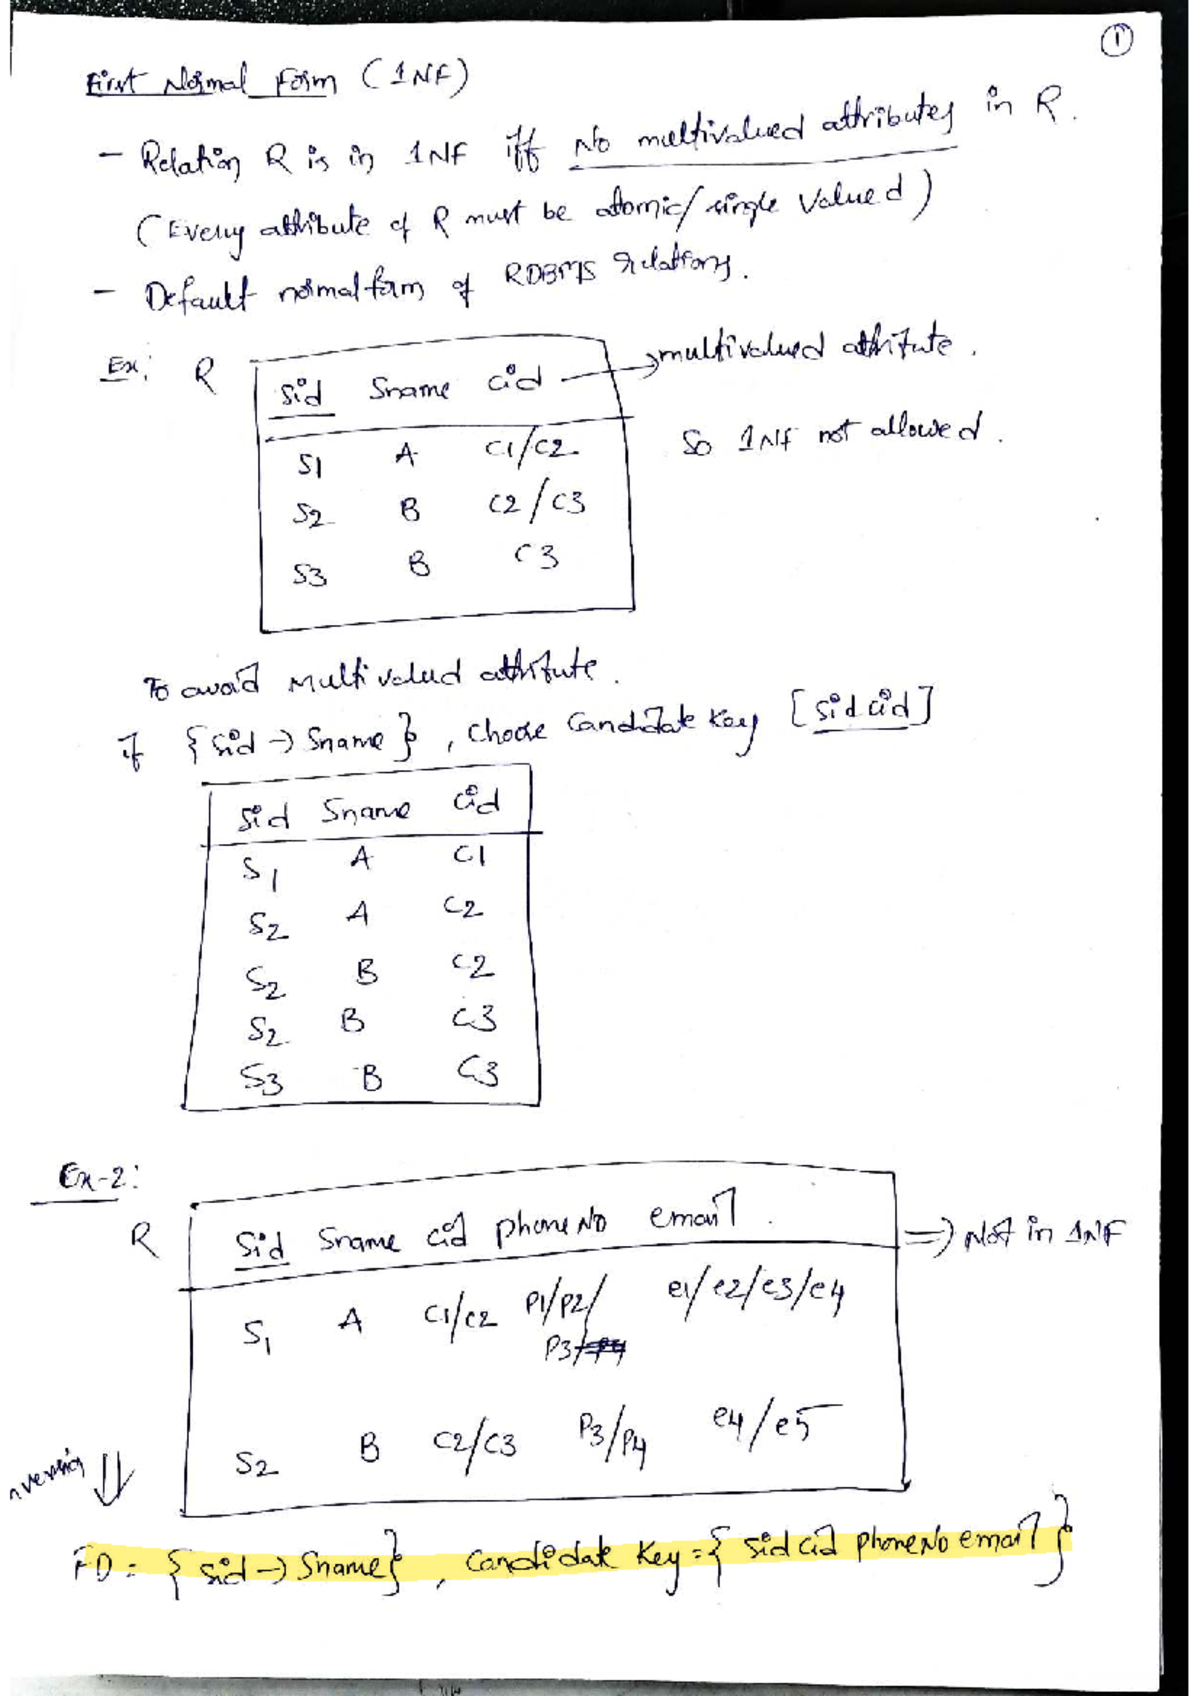 1
First Normal Form (1NF)
- Relation R is in 1NF iff No multivalued attributes in R.
(Every attribute of R must be atomic/single Valued)
- Default normal form of RDBMS relations.
Ex: R
Sid Sname cid → multivalued attribute.
So 1NF not allowed.
S1 A C1/C2
S2 B C2/C3
S3 B C3
To avoid Multi valued attribute.
if {sid → Sname}, Choose Candidate Key [sid cid]
Sid Sname Cid
S1 A C1
S2 A C2
S2 B C2
S2 B C3
S3 B C3
Ex-2:
R
Sid Sname cid phoneNo email. ⇒ Not in 1NF
S1 A C1/C2 P1/P2/ e1/e2/e3/e4
P3/
S2 B C2/C3 P3/P4 e4/e5
FD = {sid → Sname}, Candidate Key = {sid cid phoneNo email}